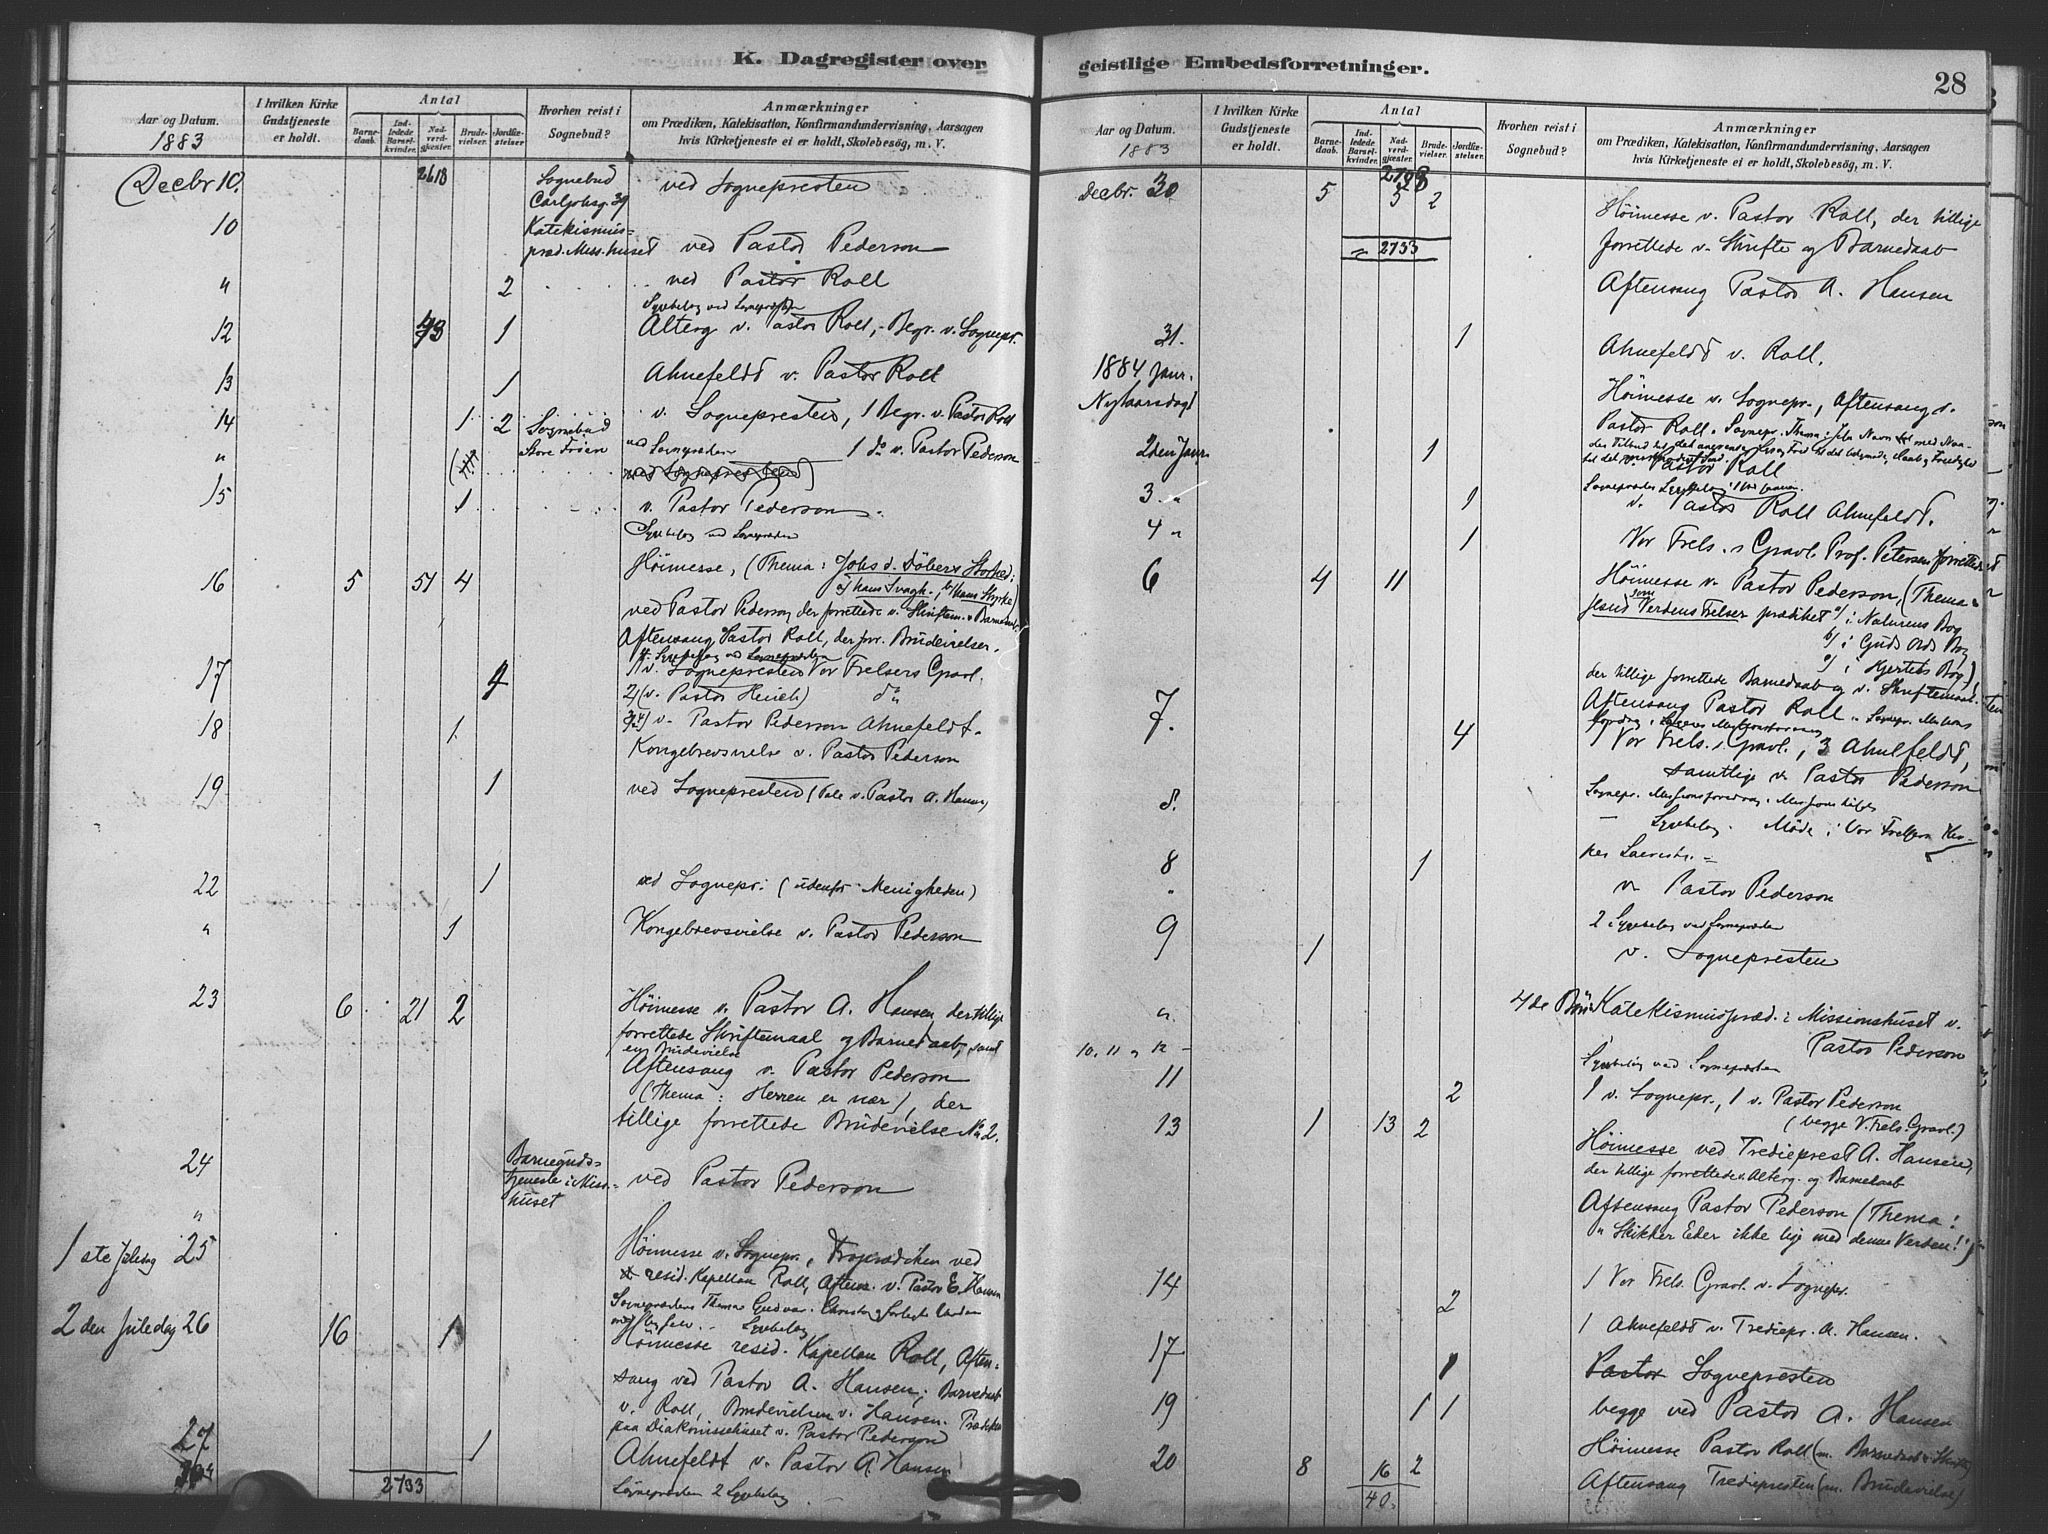 K. Dagregister over
Aar og Datum.
1883
I hvilken Kirke Gudstjeneste er holdt.
Antal
Barnedaab.
Indledede Barselkvinder.
Nadverdgjæster.
Brudevielser.
Jordfæstelser
Hvorhen reist i Sognebud?
Anmærkninger
om Prædiken, Katekisation, Konfirmandundervisning, Aarsagen
hvis Kirketjeneste ei er holdt, Skolebesøg, m. V.
Decbr 10. 2618 Sognebud ved Sognepresten
Carljohsg. 39
10 Katekismus-
præd. Miss.huset ved Pastor Pederson
" 2 ved Pastor Roll
Sygebesøg ved Sognepresten
12 1 Alterg v. Pastor Roll, Begr. v. Sognepr.
13 1 Ahnefeldt v. Pastor Roll
14 1 2 Sognebud v. Sognepresten, 1 Begr. v. Pastor Roll
Store Frøen 1 do v. Pastor Pederson
" ved Sognepresten
15 1 v. Pastor Pederson
Sygebesøg ved Sognepresten
16 5 51 4 Höimesse, (Thema: Johs d. Döbers Storhed:
a) hans Svagh., b) hans Styrke)
ved Pastor Pederson der forrettede v. Skriftem. & Barnedaab
Aftensang Pastor Roll, der forr. Brudevielser.
17 4 1 v. Sognepresten Vor Frelsers Gravl.
2 (v. Pastor Heuch) do
3, 4) v. Pastor Pederson Ahnefeldt.
18 1 Kongebrevsvielse v. Pastor Pederson
19 1 ved Sognepresten (Tale v. Pastor A. Hansen)
22 1 ved Sognepr: (udenfor Menigheden)
" 1 Kongebrevsvielse v. Pastor Pederson
23 6 21 2 Höimesse v. Pastor A. Hansen der tillige
forrettede Skriftemaal og Barnedaab, samt
en Brudevielse
Aftensang v. Pastor Pederson
(Thema: Herren er nær), der
tillige forrettede Brudevielse No 2.
24 Barneguds-
tjeneste i Miss.- ved Pastor Pederson
huset
"
1ste Juledag 25 Höimesse v. Sognepr., Froprædiken ved
resid. Kapellan Roll, Aftens. v. Pastor E. Hansen
Sygebesøg
2den Juledag 26 16 1 Höimesse resid. Kapellan Roll, Aften-
sang ved Pastor A. Hansen; Barnedaab
v. Roll, Brudevielsen v. Hansen. Prædiken
paa Diakonissehuset v. Pastor Pederson
27 1 Ahnefeldt v. Pastor A. Hansen
2733 Sognepresten 2 Sygebesøg
geistlige Embedsforretninger.
28
Aar og Datum.
1883
I hvilken Kirke Gudstjeneste er holdt.
Antal
Barnedaab.
Indledede Barselkvinder.
Nadverdgjæster.
Brudevielser.
Jordfæstelser.
Hvorhen reist i Sognebud?
Anmærkninger
om Prædiken, Katekisation, Konfirmandundervisning, Aarsagen
hvis Kirketjeneste ei er holdt, Skolebesøg, m. V.
Decbr. 30 5 5 2 Höimesse v. Pastor Roll, der tillige
= 2733 forrettede v. Skrifte og Barnedaab
Aftensang Pastor A. Hansen
31. 1 Ahnefeldt v. Roll.
1884 Janr.
Nytaarsdag Höimesse v. Sognepr., Aftensang v.
Pastor Roll. Sognepr. Thema: Jesu Navn
2den Janr 1 v. Pastor Roll
3. " 1 v. Pastor Roll Ahnefeldt.
4 " 1 Vor Frels. s Gravl. Prof. Petersen forrettede
6 4 11 Höimesse v. Pastor Pederson, (Thema:
Jesus som Verdens Frelser prædiket a) i Naturens Bog
b) i Guds Ords Bog
c) i Hjertets Bog),
der tillige forrettede Barnedaab og v. Skriftemaal.
Aftensang Pastor Roll
7. 4 1 Vor Frels. s. Gravl., 3 Ahnefeldt,
samtlige v. Pastor Pederson
8. Sognepr. Missionsforedrag i Missionshuset
— Sygebesøg. Møde i Vor Frelsers Kir-
kes
8 1 v. Pastor Pederson
"
2 Sygebesøg ved Sognepresten
9 1 v. Sognepresten
" Katekismuspræd. i Missionshuset v.
Pastor Pederson
10. 11 og 12 - Sygebesøg ved Sognepresten
11 2 1 v. Sognepr., 1 v. Pastor Pederson
(begge V. Frels. Gravl.)
13 1 13 2 Höimesse ved Trediepræst A. Hansen,
der tillige forrettede v. Alterg. og Barnedaab
Aftensang Pastor Pederson (Thema:
"Skikker Eder ikke lige med denne Verden!")
14 2 1 Vor Frels. Gravl. v. Sognepr.
1 Ahnefeldt v. Trediepr. A. Hansen.
17 1 Pastor Sognepresten
19 1 1 begge ved Pastor A. Hansen
20 8 16 2 Höimesse Pastor Roll (m. Barnedaab & Skrifte)
40. Aftensang Trediepresten (m. Brudevielse)